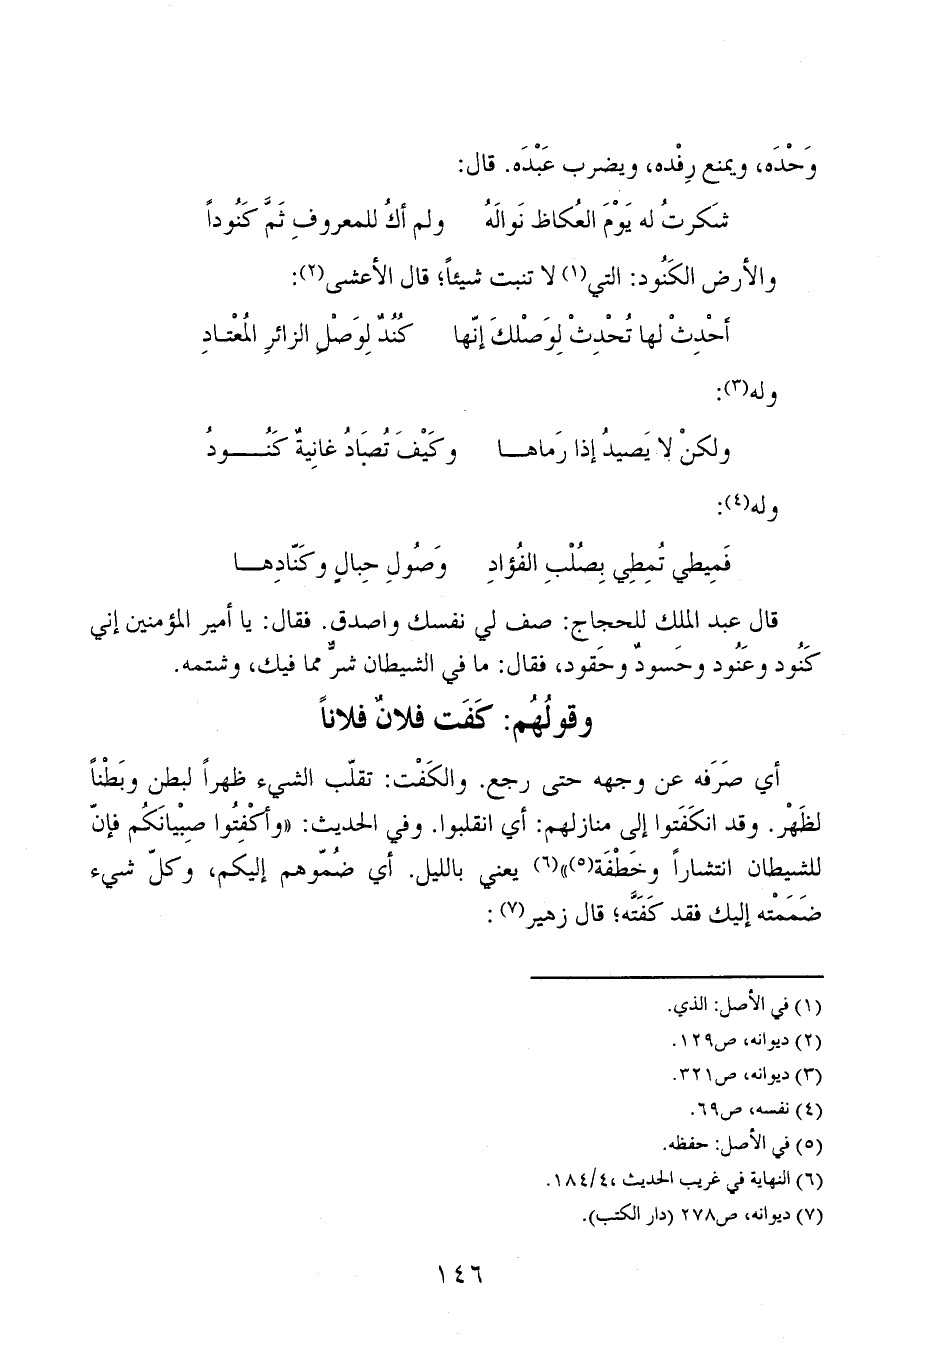 وَحْدَه، ويمنع رِفْده، ويضرب عَبْدَه. قال:
شكرتُ له يَوْمَ العُكاظ نَوالَهُ ولم أكُ للمعروفِ ثَمَّ كَنُوداً
والأرض الكَنُود: التي(١) لا تنبت شيئاً؛ قال الأعشى(٢):
أحْدِثْ لها تُحْدِثْ لِوَصْلكَ إنّها كُنُدٌ لِوَصْلِ الزائرِ المُعْتادِ
وله(٣):
ولكنْ لا يَصيدُ إذا رَماهـا وكَيْفَ تُصَادُ غانِيةٌ كَنُـودُ
وله(٤):
فَمِيطي تُمِطِي بِصُلْبِ الفُؤادِ وَصُولِ حِبالٍ وكَنّادِهـا
قال عبد الملك للحجاج: صف لي نفسك واصدق. فقال: يا أمير المؤمنين إني
كَنُود وعَنُود وحَسودٌ وحَقود، فقال: ما في الشيطان شرٌّ مما فيك، وشتمه.
وقولُهُم: كَفَت فلانٌ فلاناً
أي صَرَفه عن وجهه حتى رجع. والكَفْت: تقلّب الشيء ظهراً لبطن وبَطْناً
لظَهْر. وقد انكَفَتوا إلى منازلهم: أي انقلبوا. وفي الحديث: «وأكْفِتُوا صِبْيانَكُم فإنّ
للشيطان انتشاراً وخَطْفَة(٥)»(٦) يعني بالليل. أي ضُمّوهم إليكم، وكلّ شيء
ضَمَمْته إليك فقد كَفَتَّه؛ قال زهير(٧):
(١) في الأصل: الذي.
(٢) ديوانه، ص١٢٩.
(٣) ديوانه، ص٣٢١.
(٤) نفسه، ص٦٩.
(٥) في الأصل: حفظه.
(٦) النهاية في غريب الحديث ،١٨٤/٤.
(٧) ديوانه، ص٢٧٨ (دار الكتب).
١٤٦